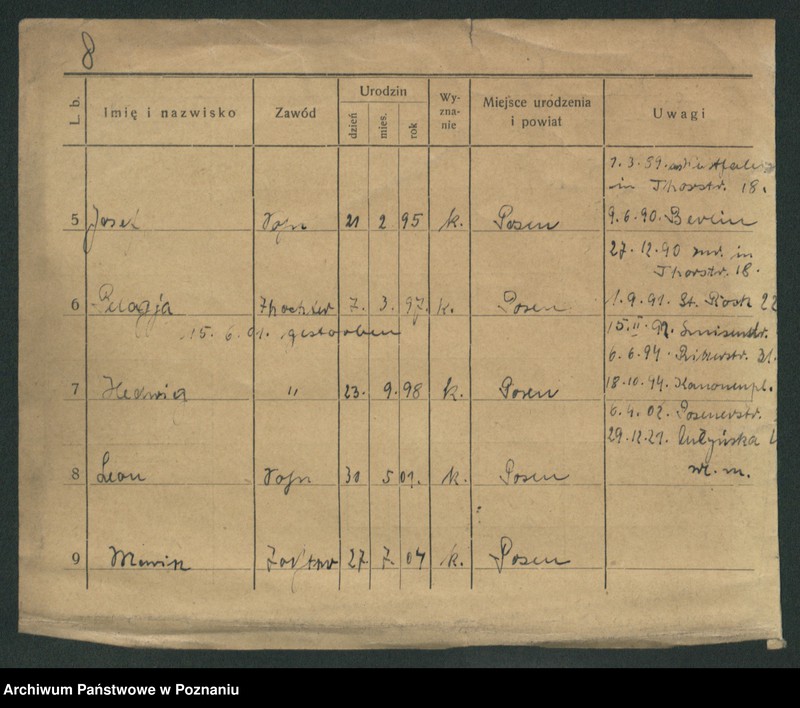 8
L. b. Imię i nazwisko Zawód Urodzin dzień mies. rok Wy-zna-nie Miejsce urodzenia i powiat Uwagi
in Thorstr. 18.
5 Josef Sohn 21 2 95 k. Posen 9.6.90. Berlin
27.12.90 in
Thorstr. 18.
6 Pelagja Tochter 7. 3. 97. k. Posen 1.9.91. St. 22
15. 6. 01. gestorben 15.II.92.
6.6.94. Ritterstr.
7 Hedwig " 23. 9. 98 k. Posen 18.10.94. Kanonenpl.
6.4.02. Posenerstr.
29.12.21.
8 Leon Sohn 30 5 01. k. Posen
9 27 7. 04 k. Posen
Archiwum Państwowe w Poznaniu